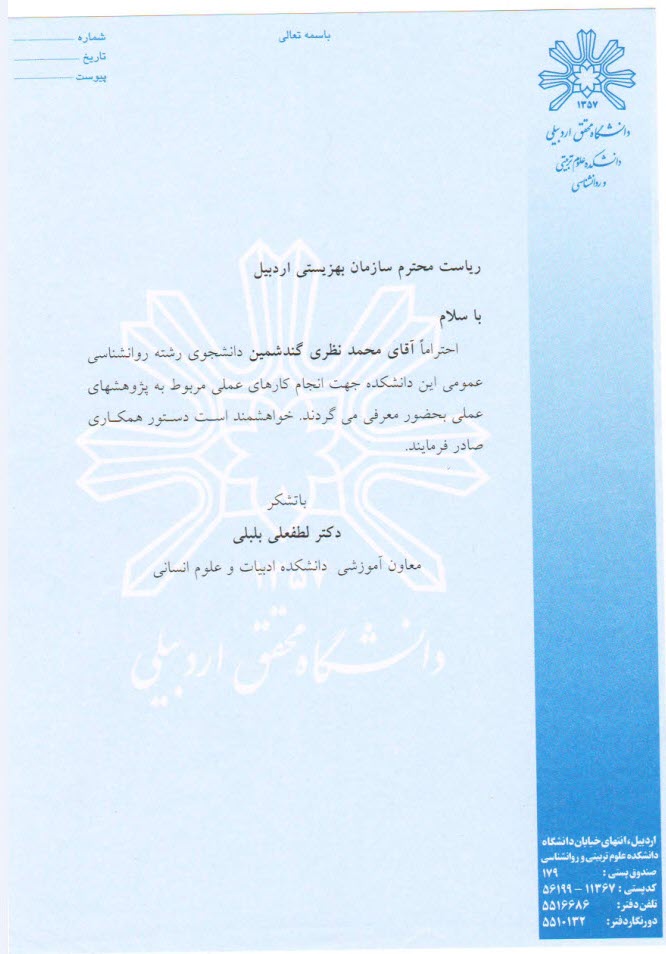 باسمه تعالی
شماره
تاریخ
پیوست
۱۳۵۷
دانشگاه محقق اردبیلی
دانشکده علوم تربیتی
و روانشناسی
ریاست محترم سازمان بهزیستی اردبیل
با سلام
احتراماً آقای محمد نظری گندشمین دانشجوی رشته روانشناسی
عمومی این دانشکده جهت انجام کارهای عملی مربوط به پژوهشهای
عملی بحضور معرفی می گردند. خواهشمند است دستور همکاری
صادر فرمایند.
باتشکر
دکتر لطفعلی بلبلی
معاون آموزشی دانشکده ادبیات و علوم انسانی
۱۳۵۷
دانشگاه محقق اردبیلی
اردبیل، انتهای خیابان دانشگاه
دانشکده علوم تربیتی و روانشناسی
صندوق پستی : ۱۷۹
کدپستی : ۱۱۳۶۷ - ۵۶۱۹۹
تلفن دفتر: ۵۵۱۶۶۸۶
دورنگار دفتر: ۵۵۱۰۱۳۲